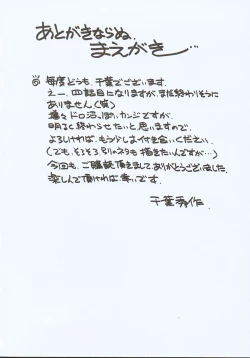 あとがきならぬ、
まえがき…
毎度どうも、千葉でございます。
えー、四話目になりますが、まだ終わりそうに
ありません。(笑)
ドロ沼っぽいカンジですが、
明るく終わらせたいと思いますので、
よろしければ、もう少しお付き合いください。
(でも、そろそろ別のネタも描きたいんですが…)
今回も、ご購読頂きまして、ありがとうございました。
楽しんで頂ければ幸いです。
千葉秀作